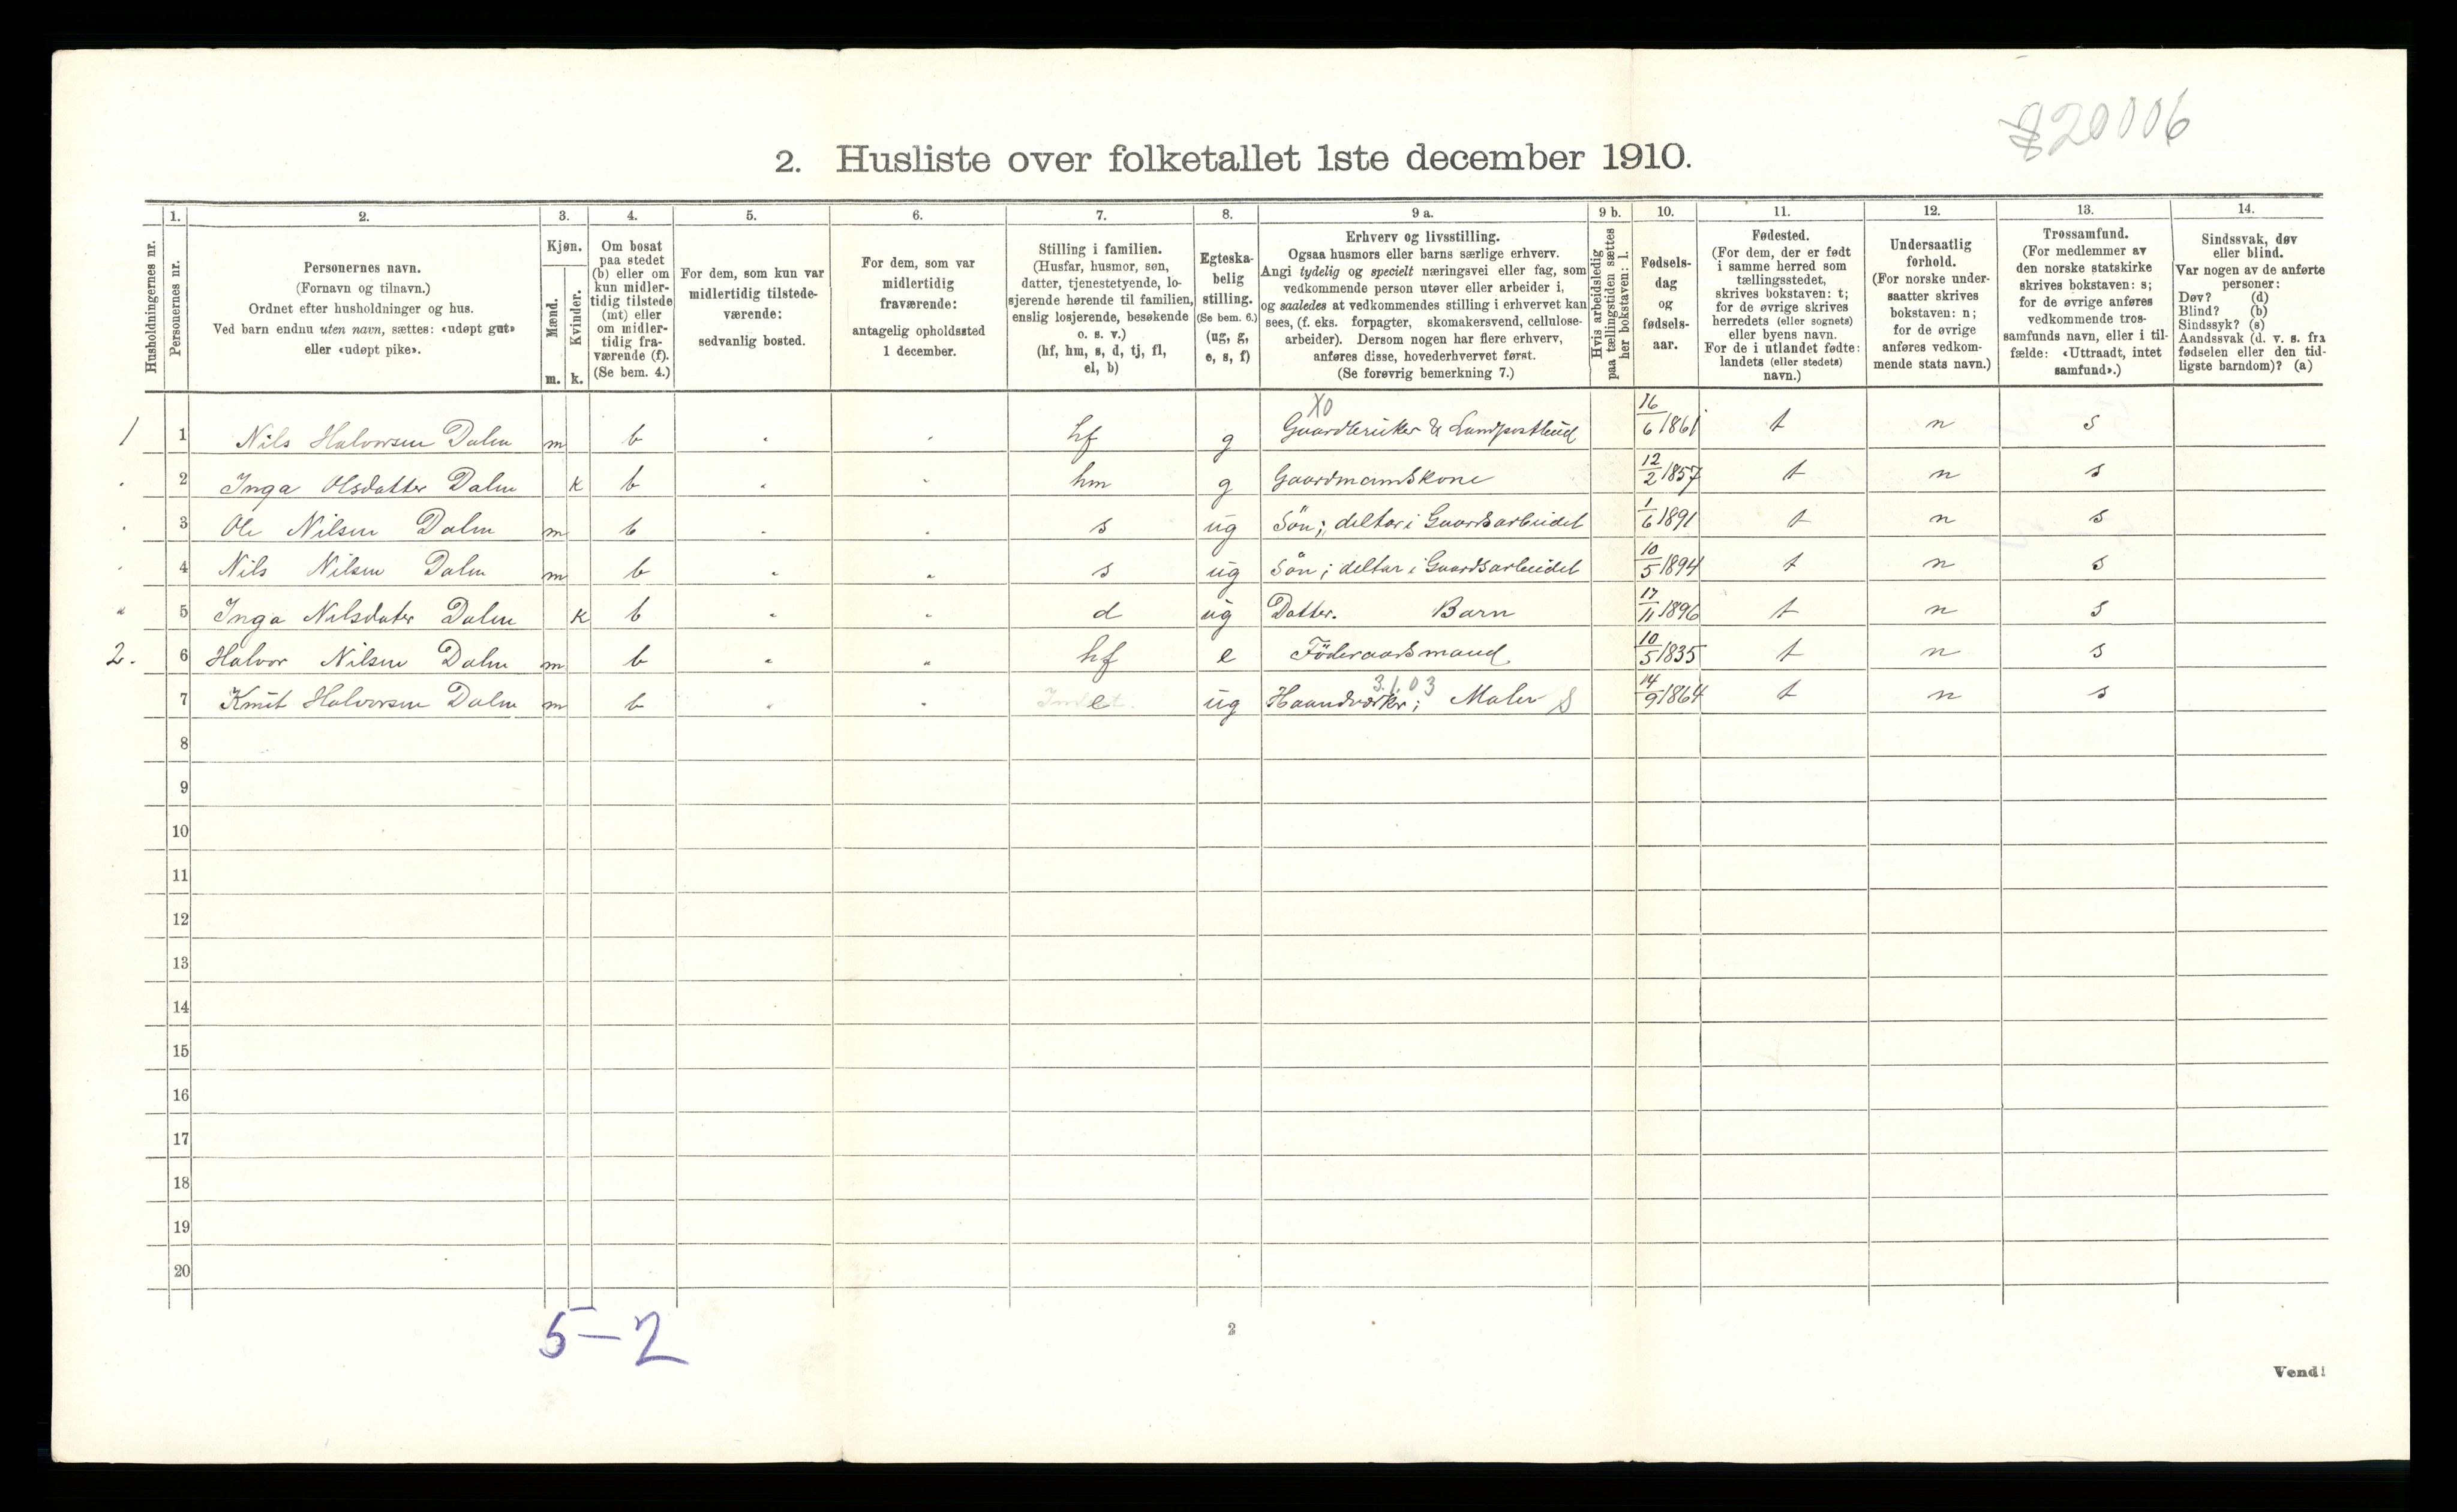 820006
2. Husliste over folketallet 1ste december 1910.
Husholdningernes nr.
1.
Personernes nr.
2.
Personernes navn.
(Fornavn og tilnavn.)
Ordnet efter husholdninger og hus.
Ved barn endnu uten navn, sættes: «udøpt gut»
eller «udøpt pike».
3.
Kjøn.
Mænd.
Kvinder.
m. k.
4.
Om bosat
paa stedet
(b) eller om
kun midler-
tidig tilstede
(mt) eller
om midler-
tidig fra-
værende (f).
(Se bem. 4.)
5.
For dem, som kun var
midlertidig tilstede-
værende:
sedvanlig bosted.
6.
For dem, som var
midlertidig
fraværende:
antagelig opholdssted
1 december.
7.
Stilling i familien.
(Husfar, husmor, søn,
datter, tjenestetyende, lo-
sjerende hørende til familien,
enslig losjerende, besøkende
o. s. v.)
(hf, hm, s, d, tj, fl,
el, b)
8.
Egteska-
belig
stilling.
(Se bem. 6.)
(ug, g,
e, s, f)
9 a.
Erhverv og livsstilling.
Ogsaa husmors eller barns særlige erhverv.
Angi tydelig og specielt næringsvei eller fag, som
vedkommende person utøver eller arbeider i,
og saaledes at vedkommendes stilling i erhvervet kan
sees, (f. eks. forpagter, skomakersvend, cellulose-
arbeider). Dersom nogen har flere erhverv,
anføres disse, hovederhvervet først.
(Se forøvrig bemerkning 7.)
9 b.
Hvis arbeidsledig
paa tællingstiden sættes
her bokstaven: l.
10.
Fødsels-
dag
og
fødsels-
aar.
11.
Fødested.
(For dem, der er født
i samme herred som
tællingsstedet,
skrives bokstaven: t;
for de øvrige skrives
herredets (eller sognets)
eller byens navn.
For de i utlandet fødte:
landets (eller stedets)
navn.)
12.
Undersaatlig
forhold.
(For norske under-
saatter skrives
bokstaven: n;
for de øvrige
anføres vedkom-
mende stats navn.)
13.
Trossamfund.
(For medlemmer av
den norske statskirke
skrives bokstaven: s;
for de øvrige anføres
vedkommende tros-
samfunds navn, eller i til-
fælde: «Uttraadt, intet
samfund».)
14.
Sindssvak, døv
eller blind.
Var nogen av de anførte
personer:
Døv? (d)
Blind? (b)
Sindssyk? (s)
Aandssvak (d. v. s. fra
fødselen eller den tid-
ligste barndom)? (a)
X0
1 1 Nils Halvorsen Dalen m b " " hf g Gaardbruker & Landpostbud 16/6 1861 t n s
" 2 Inga Olsdatter Dalen k b " " hm g Gaardmandskone 12/2 1857 t n s
" 3 Ole Nilsen Dalen m b " " s ug Søn; deltar i Gaardsarbeidet 1/6 1891 t n s
" 4 Nils Nilsen Dalen m b " " s ug Søn; deltar i Gaardsarbeidet 10/5 1894 t n s
" 5 Inga Nilsdater Dalen k b " " d ug Datter. Barn 17/11 1896 t n s
2. 6 Halvor Nilsen Dalen m b " " hf e Föderaadsmand 10/5 1835 t n s
3.1.03
7 Knut Halvorsen Dalen m b " " e ug Haandværker; Maler S 14/9 1864 t n s
8
9
10
11
12
13
14
15
16
17
18
19
20
5-2
2
Vend!